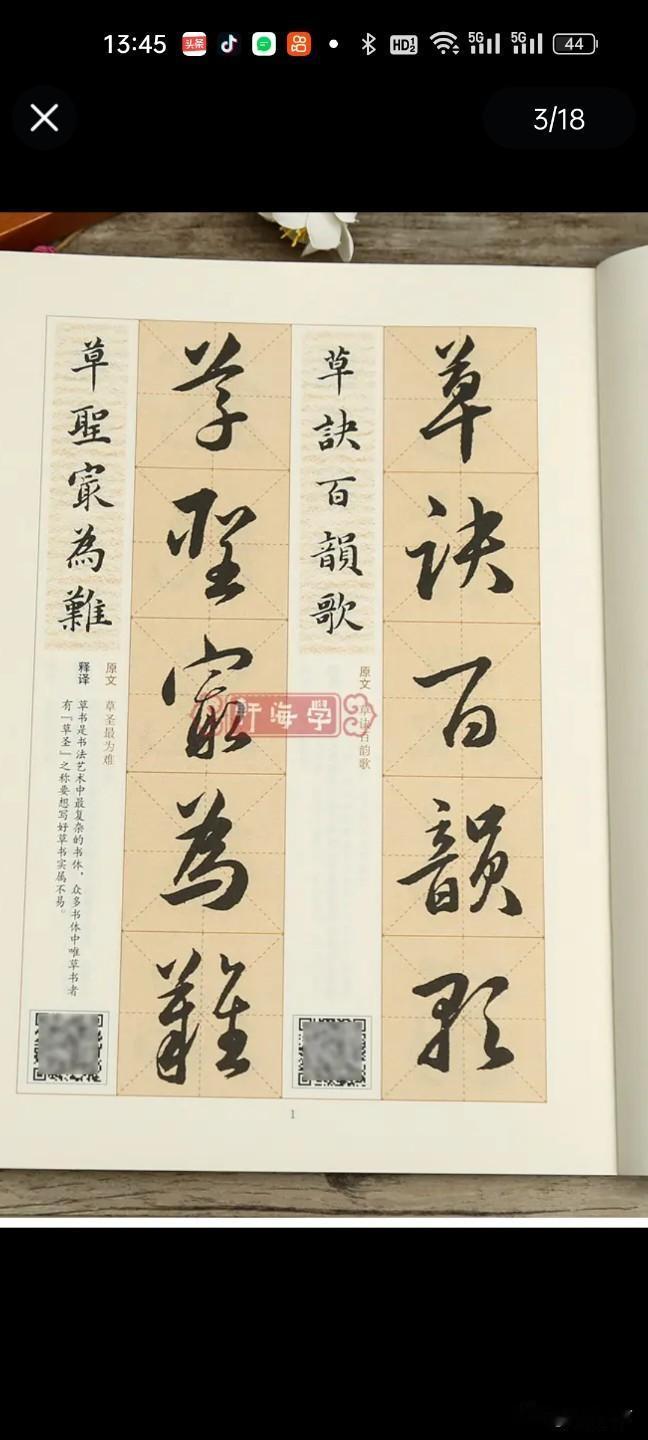 13:45
头条
HD 1 2
5G
5G
44
3/18
草訣百韻歌
草訣百韻歌
原文 草诀百韵歌
草聖㝡為難
草聖㝡為難
原文 草圣最为难
释译 草书是书法艺术中最复杂的书体，众多书体中唯草书者
有『草圣』之称要想写好草书实属不易。
轩海学
1